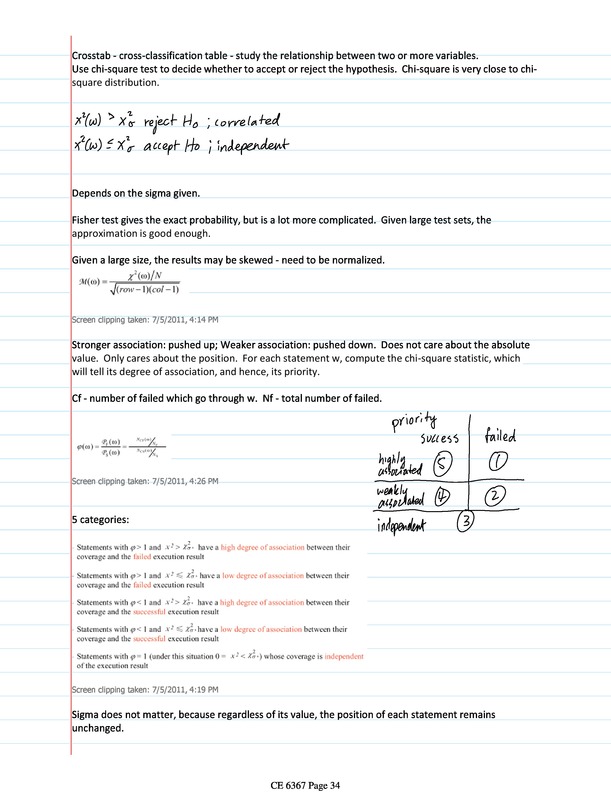 Crosstab - cross-classification table - study the relationship between two or more variables.
Use chi-square test to decide whether to accept or reject the hypothesis. Chi-square is very close to chi-
square distribution.
x²(ω) > x²σ reject Ho ; correlated
x²(ω) ≤ x²σ accept Ho ; independent
Depends on the sigma given.
Fisher test gives the exact probability, but is a lot more complicated. Given large test sets, the
approximation is good enough.
Given a large size, the results may be skewed - need to be normalized.
M(ω) = χ²(ω)/N / √(row −1)(col −1)
Screen clipping taken: 7/5/2011, 4:14 PM
Stronger association: pushed up; Weaker association: pushed down. Does not care about the absolute
value. Only cares about the position. For each statement w, compute the chi-square statistic, which
will tell its degree of association, and hence, its priority.
Cf - number of failed which go through w. Nf - total number of failed.
priority
success failed
highly associated 5 1
weakly associated 4 2
independent 3
φ(ω) =
Screen clipping taken: 7/5/2011, 4:26 PM
5 categories:
Statements with φ > 1 and x² > χ²σ, have a high degree of association between their
coverage and the failed execution result
Statements with φ > 1 and x² ≤ χ²σ, have a low degree of association between their
coverage and the failed execution result
Statements with φ < 1 and x² > χ²σ, have a high degree of association between their
coverage and the successful execution result
Statements with φ < 1 and x² ≤ χ²σ, have a low degree of association between their
coverage and the successful execution result
Statements with φ = 1 (under this situation 0 = x² < χ²σ,) whose coverage is independent
of the execution result
Screen clipping taken: 7/5/2011, 4:19 PM
Sigma does not matter, because regardless of its value, the position of each statement remains
unchanged.
CE 6367 Page 34